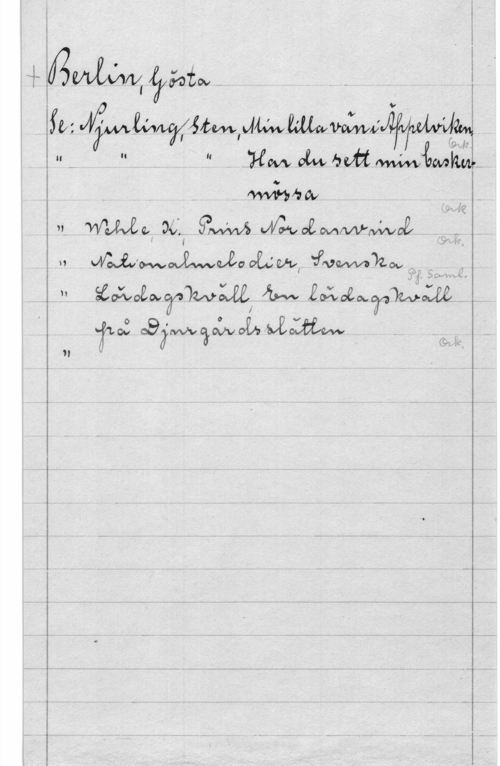 + Berlin, Gösta
Se: Njurling, Sten, Min lilla vän i Äppelviken
Ork.
" " " Har du sett min basker-
mössa
Ork
" Wehle, K., Prins Nordanvind
Ork.
" Nationalmelodier, Svenska
Pf. Saml.
" Lördagskväll, En lördagskväll
på Djurgårdsslätten
Ork.
"